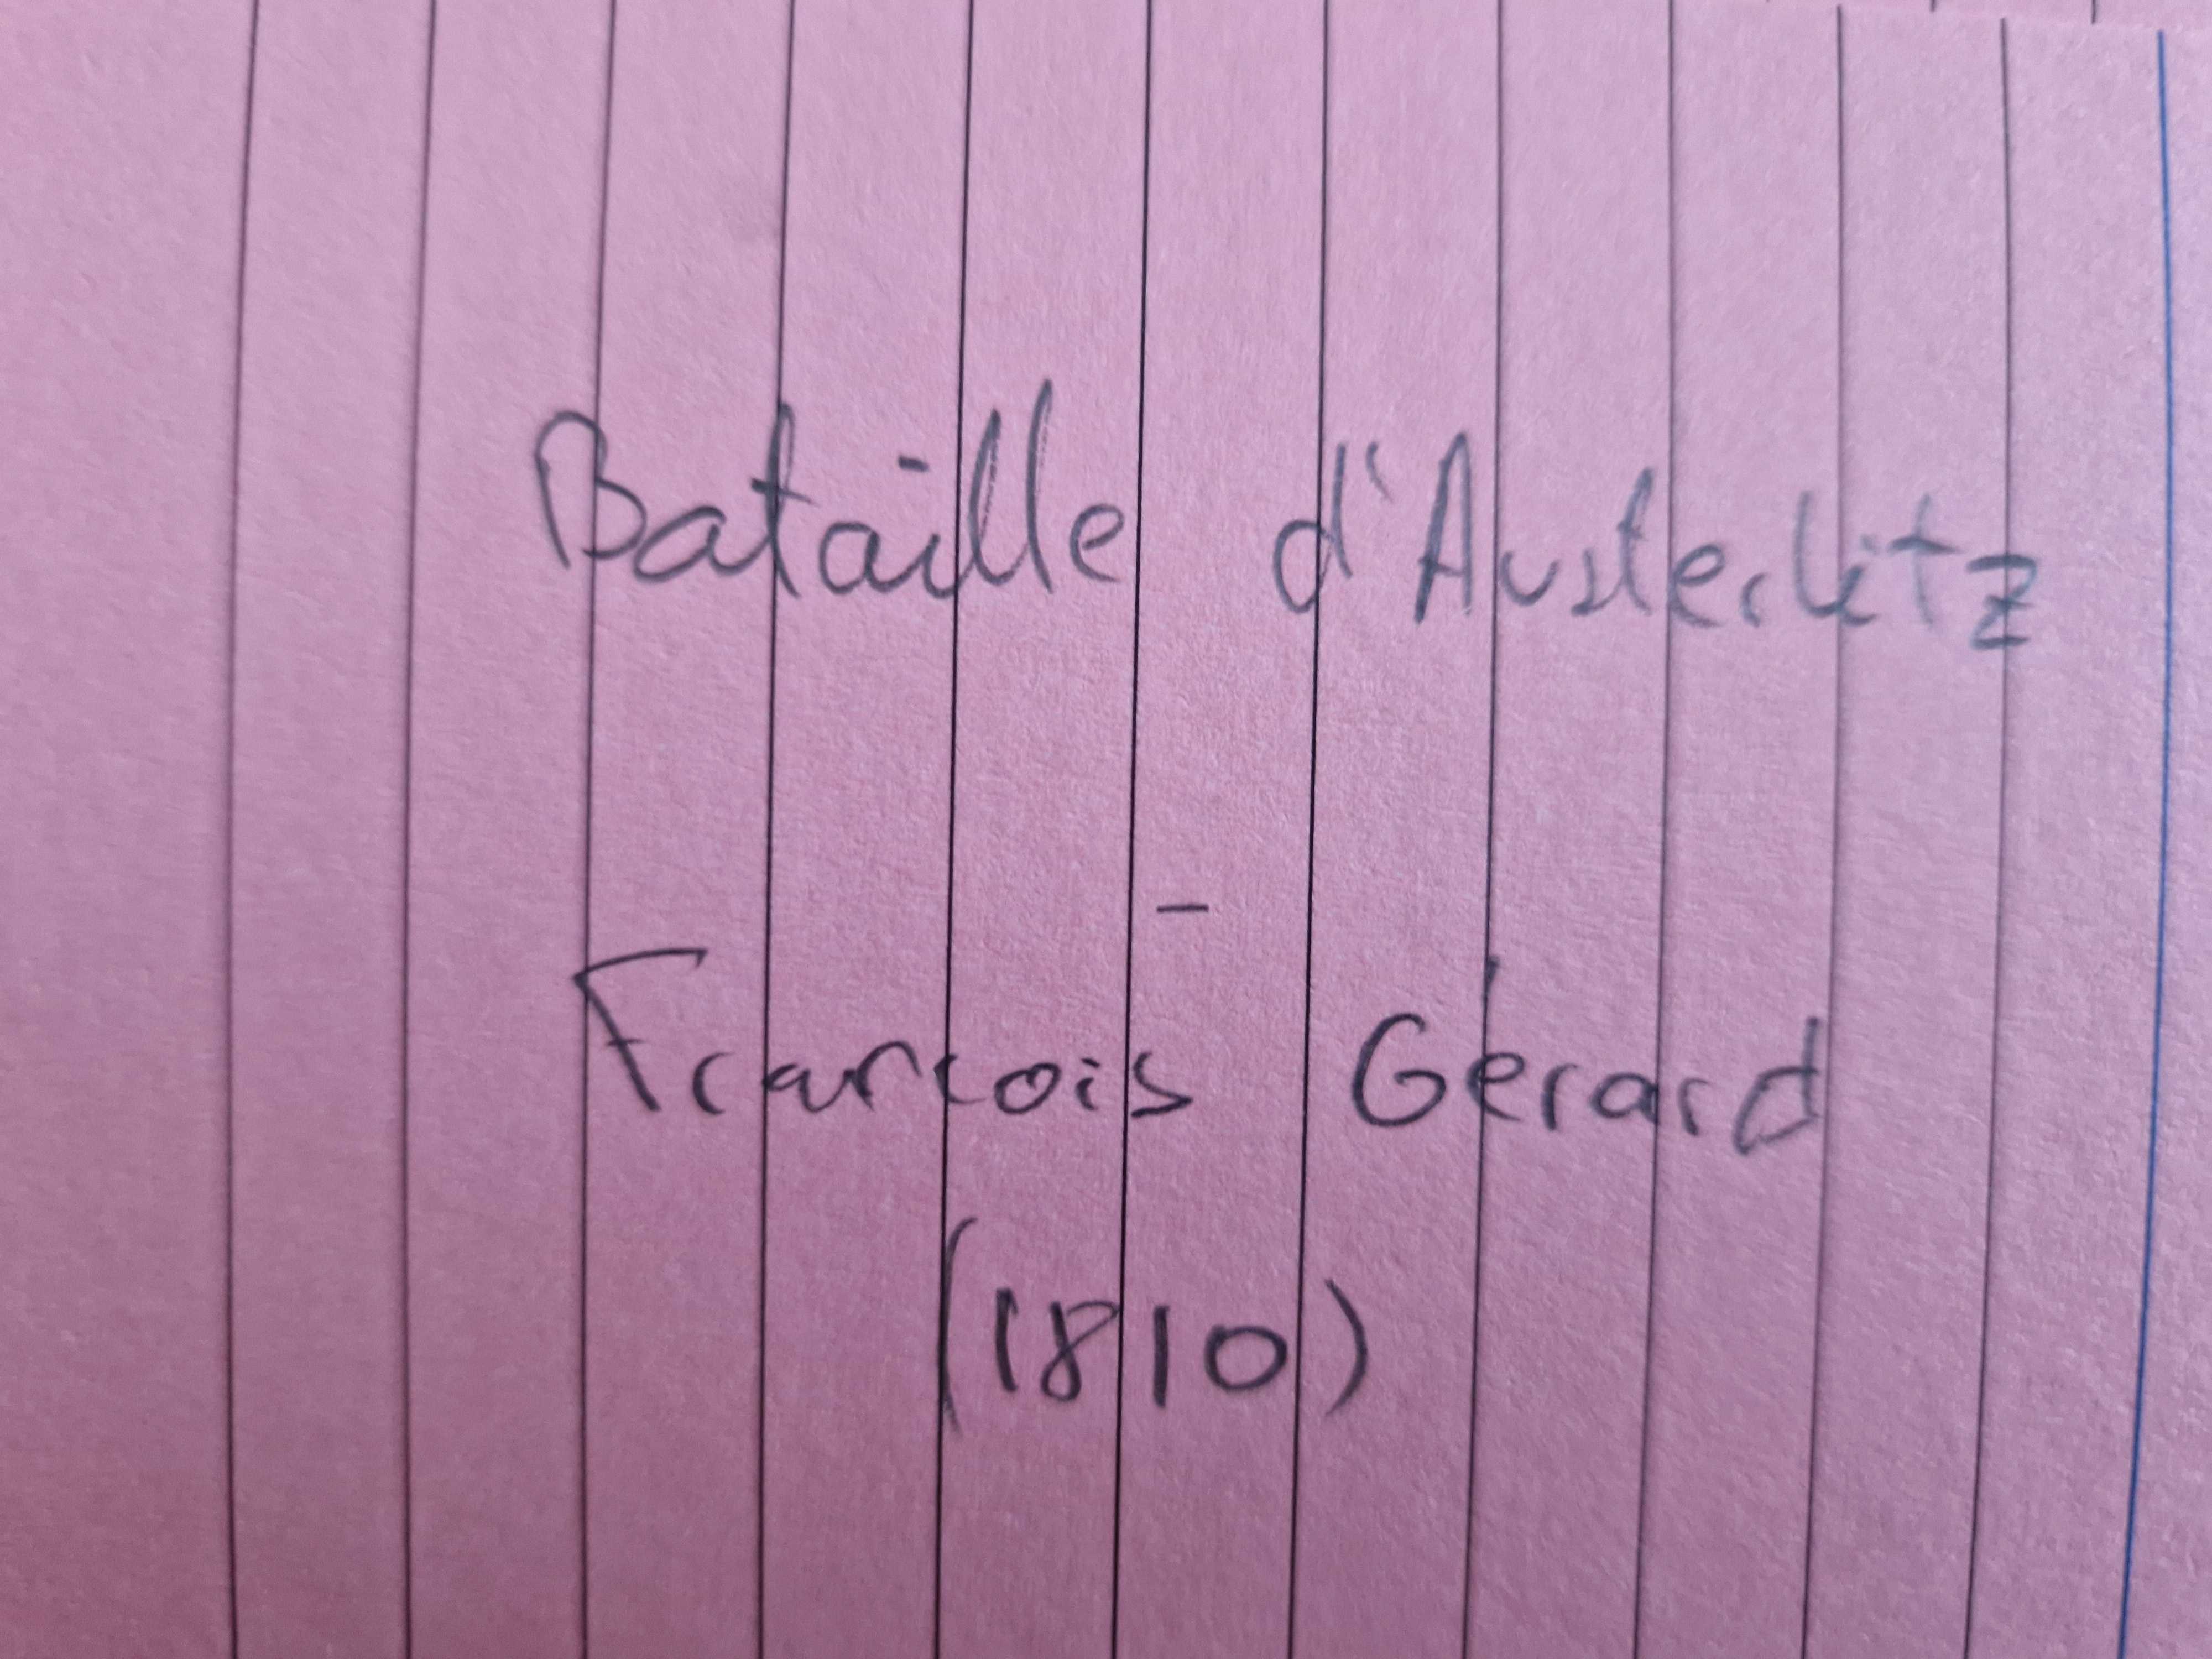 Bataille d'Austerlitz
-
Francois Gérard
(1810)